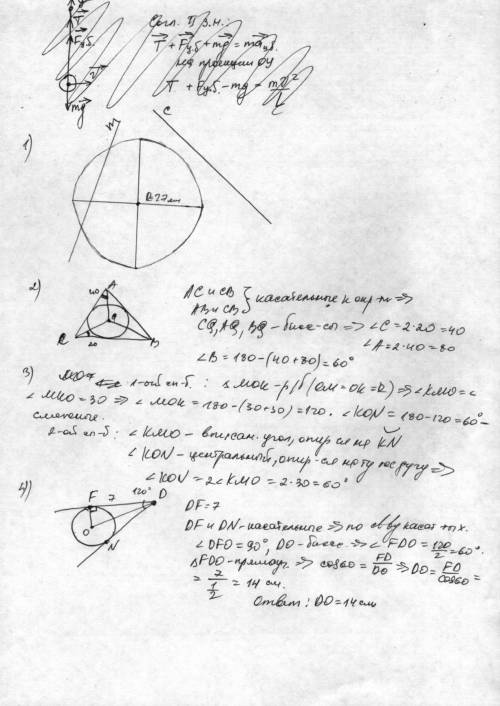 Согл. II з.н.:
T + Fу.б. + mg = maц.б.
на проекции OY
T + Fу.б. - mg = mv²/L
T
Fу.б.
mg
1)
m
C
R=27мм
2)
A
40
Q
C
20
B
AC и CB
AB и CB } касательные к окр-ти =>
CQ, AQ, BQ - бисс-сы => ∠C = 2·20 = 40
∠A = 2·40 = 80
∠B = 180-(40+80) = 60°
3) 1-ой сп-б. : △ MOK - р/б (OM = OK = R) => ∠KMO =
∠MKO = 30 => ∠MOK = 180-(30+30) = 120. ∠KON = 180-120 = 60°-
смежные.
2-ой сп-б: ∠KMO - впис. угол, опир-ся на KN
∠KON - центральный, опир-ся на ту же дугу =>
∠KON = 2∠KMO = 2·30 = 60°
4)
F 7 120° D
O
N
DF = 7
DF и DN - касательные => по св-ву касат-ых.
∠DFO = 90°, DO - бисс. => ∠FDO = 120/2 = 60°.
△FDO - прямоуг. => cos60 = FD/DO => DO = FD/cos60 =
= 7/(1/2) = 14 см.
Ответ: DO = 14 см